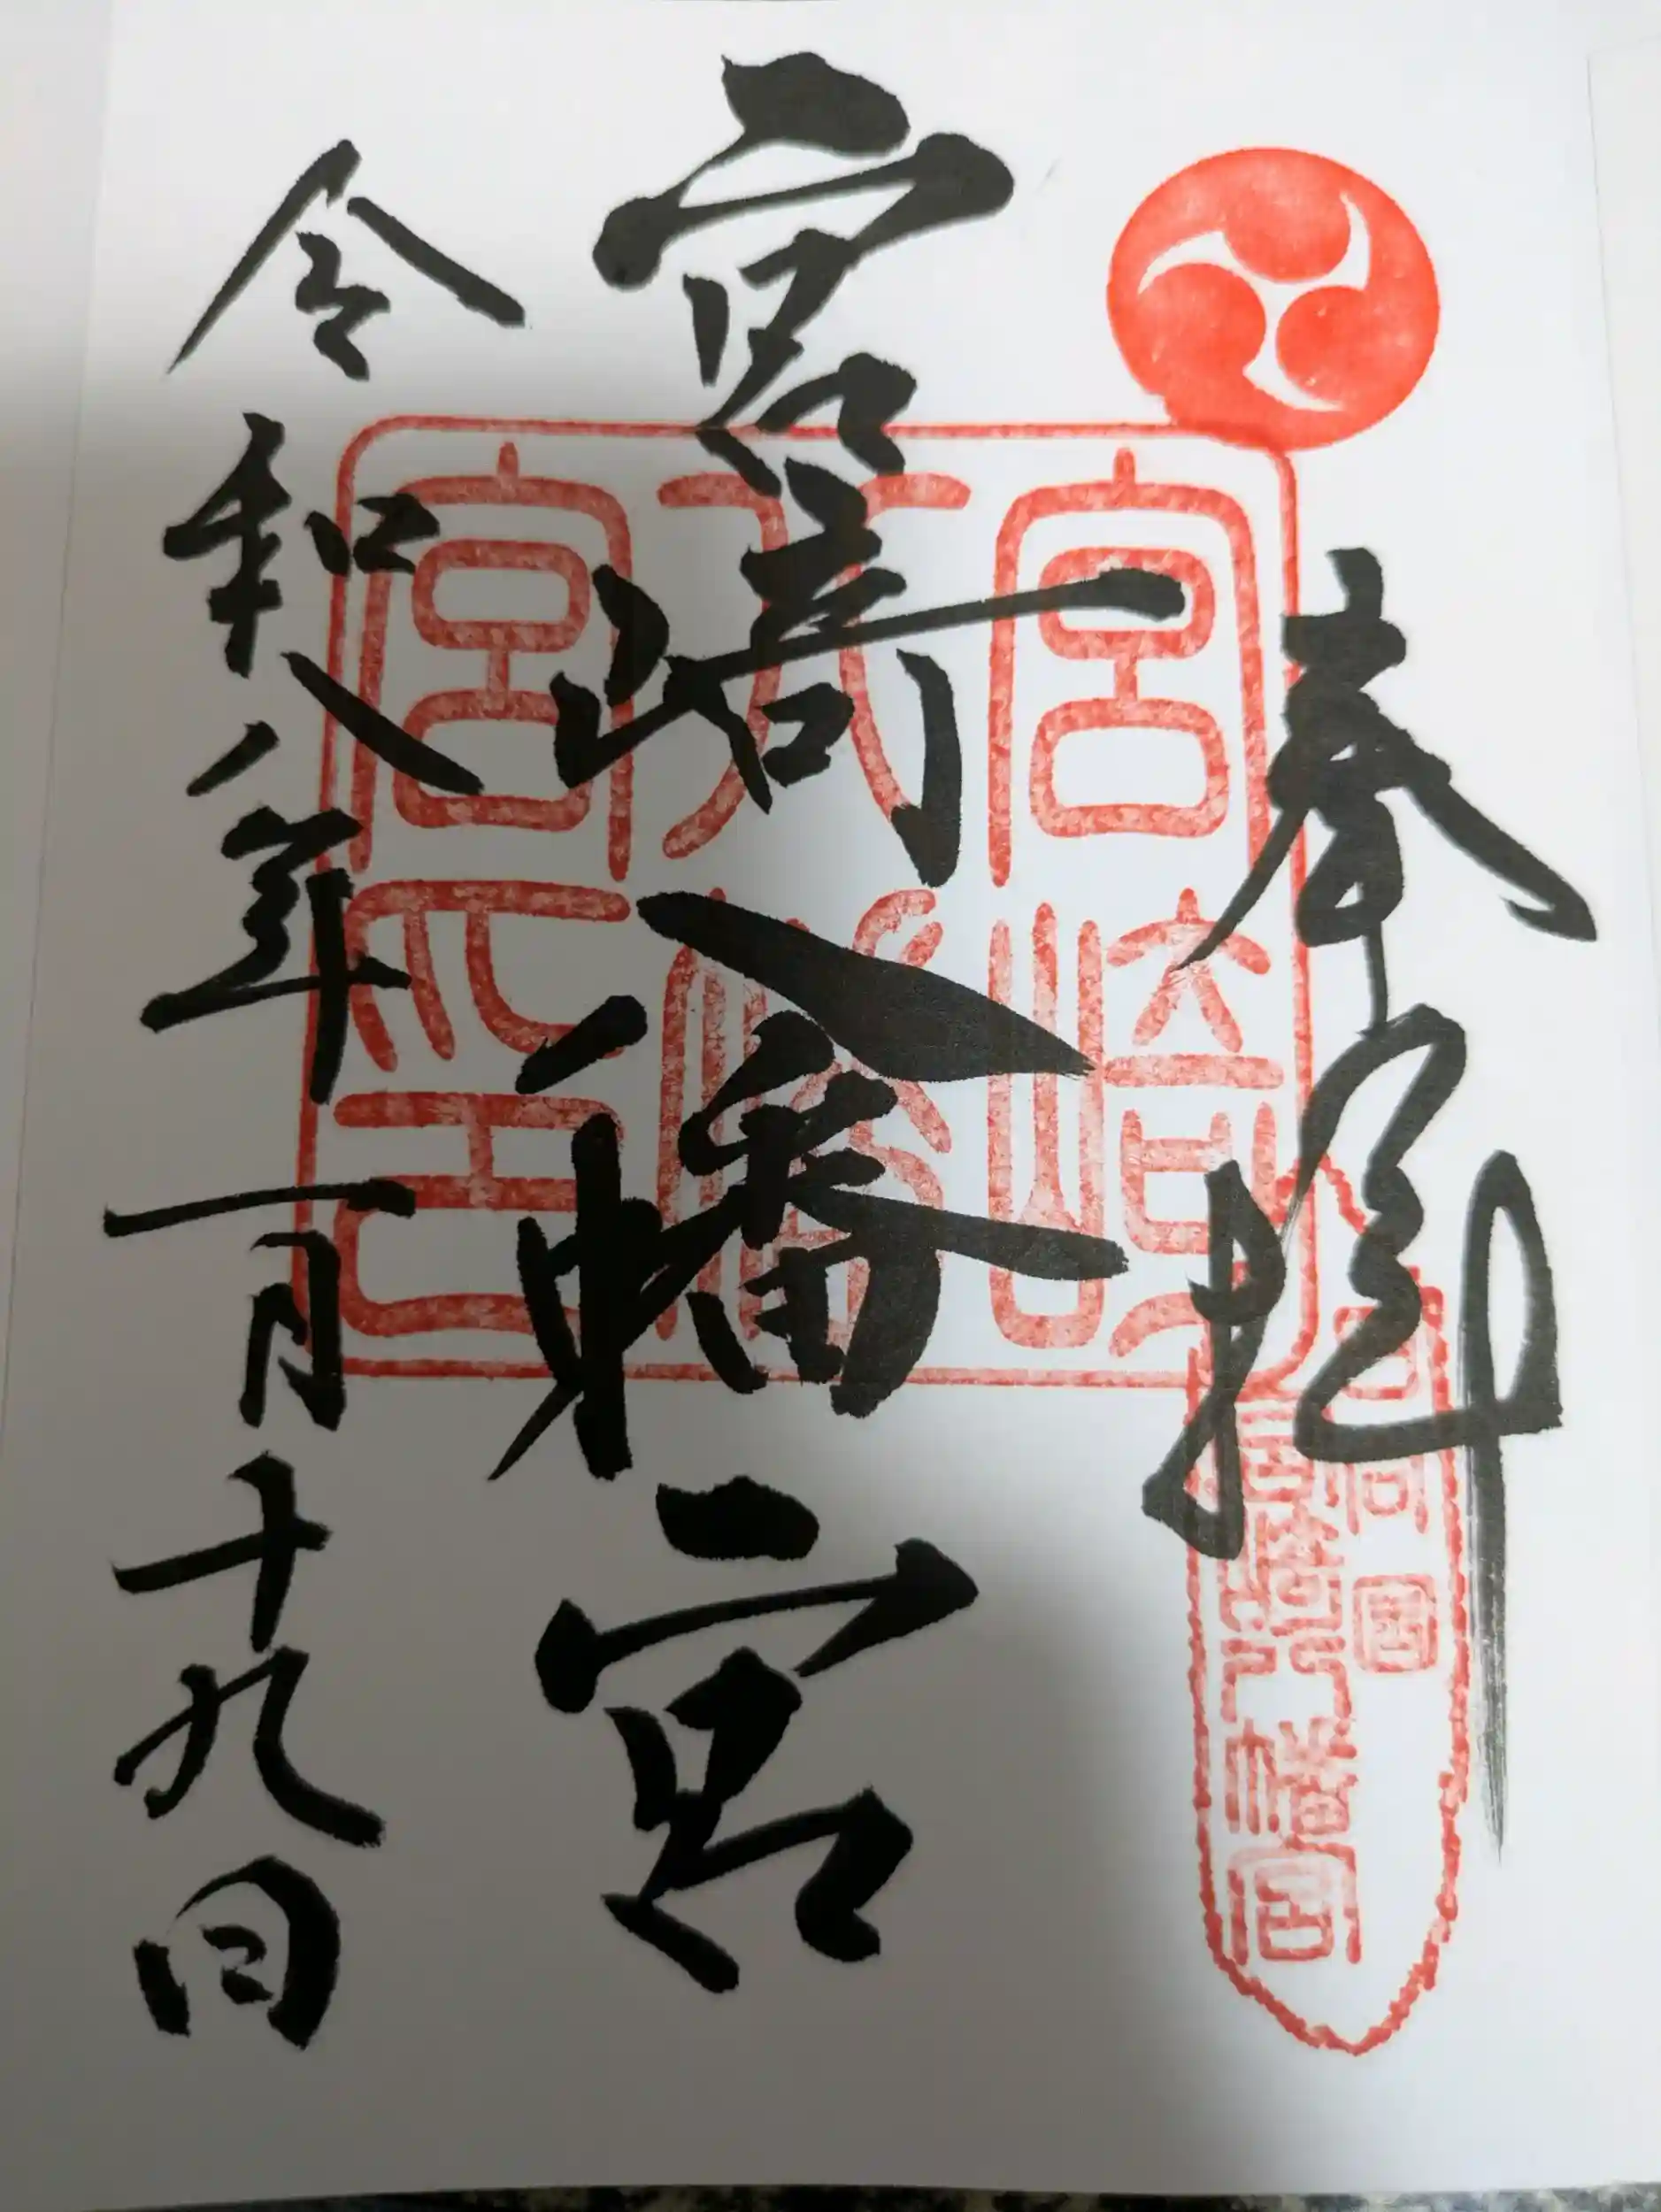 奉拝
日向國
宮崎八幡宮
宮崎
八幡
宮印
宮崎八幡宮
令和八年一月十九日